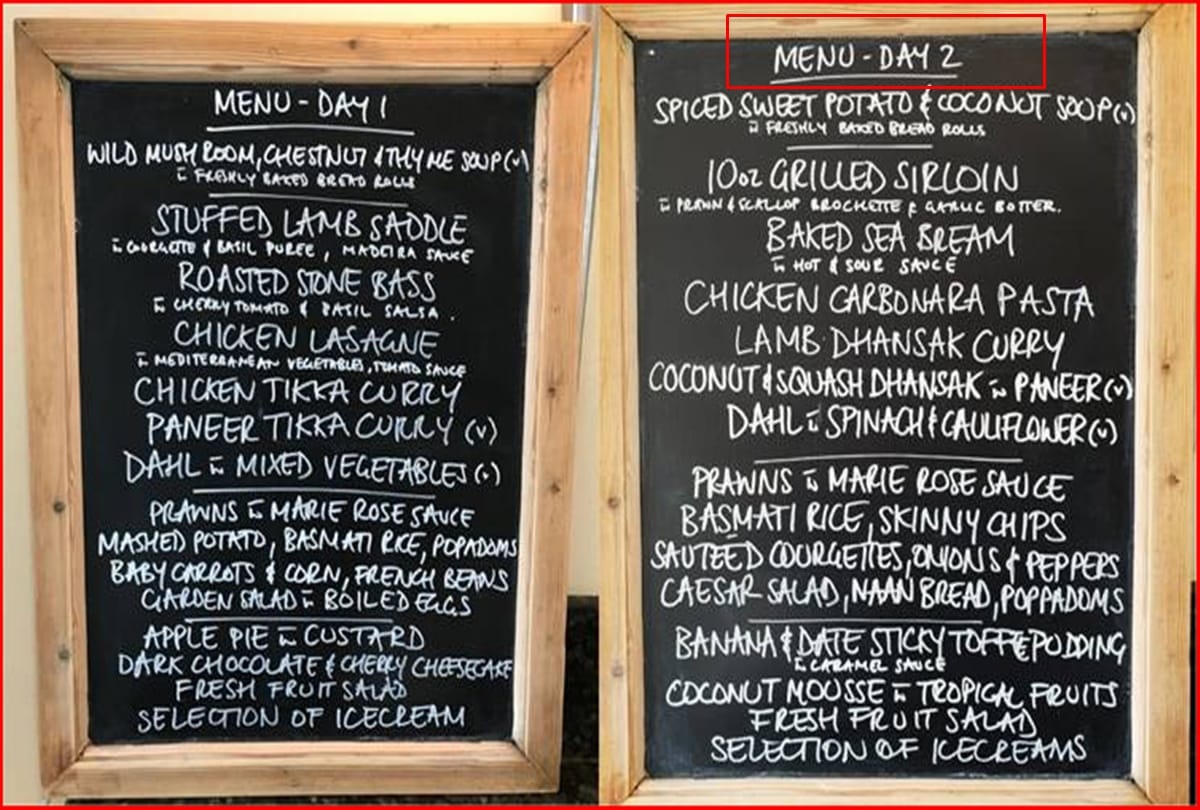 MENU - DAY 1
WILD MUSHROOM, CHESTNUT & THYME SOUP (v)
w FRESHLY BAKED BREAD ROLLS
STUFFED LAMB SADDLE
w COURGETTE & BASIL PUREE, MADEIRA SAUCE
ROASTED STONE BASS
w CHERRY TOMATO & BASIL SALSA.
CHICKEN LASAGNE
w MEDITERRANEAN VEGETABLES, TOMATO SAUCE
CHICKEN TIKKA CURRY
PANEER TIKKA CURRY (v)
DAHL w MIXED VEGETABLES (v)
PRAWNS w MARIE ROSE SAUCE
MASHED POTATO, BASMATI RICE, POPADOMS
BABY CARROTS & CORN, FRENCH BEANS
GARDEN SALAD w BOILED EGGS
APPLE PIE w CUSTARD
DARK CHOCOLATE & CHERRY CHEESECAKE
FRESH FRUIT SALAD
SELECTION OF ICECREAM
MENU - DAY 2
SPICED SWEET POTATO & COCONUT SOUP (v)
w FRESHLY BAKED BREAD ROLLS
10oz GRILLED SIRLOIN
w PRAWN & SCALLOP BROCHETTE & GARLIC BUTTER.
BAKED SEA BREAM
w HOT & SOUR SAUCE
CHICKEN CARBONARA PASTA
LAMB DHANSAK CURRY
COCONUT & SQUASH DHANSAK w PANEER (v)
DAHL w SPINACH & CAULIFLOWER (v)
PRAWNS w MARIE ROSE SAUCE
BASMATI RICE, SKINNY CHIPS
SAUTEED COURGETTES, ONIONS & PEPPERS
CAESAR SALAD, NAAN BREAD, POPPADOMS
BANANA & DATE STICKY TOFFEE PUDDING
w CARAMEL SAUCE
COCONUT MOUSSE w TROPICAL FRUITS
FRESH FRUIT SALAD
SELECTION OF ICECREAMS